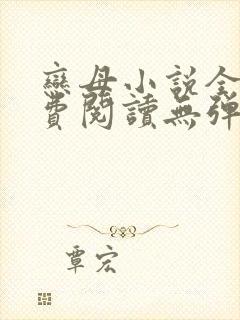 戀母小說全
費閱讀無彈
覃宏